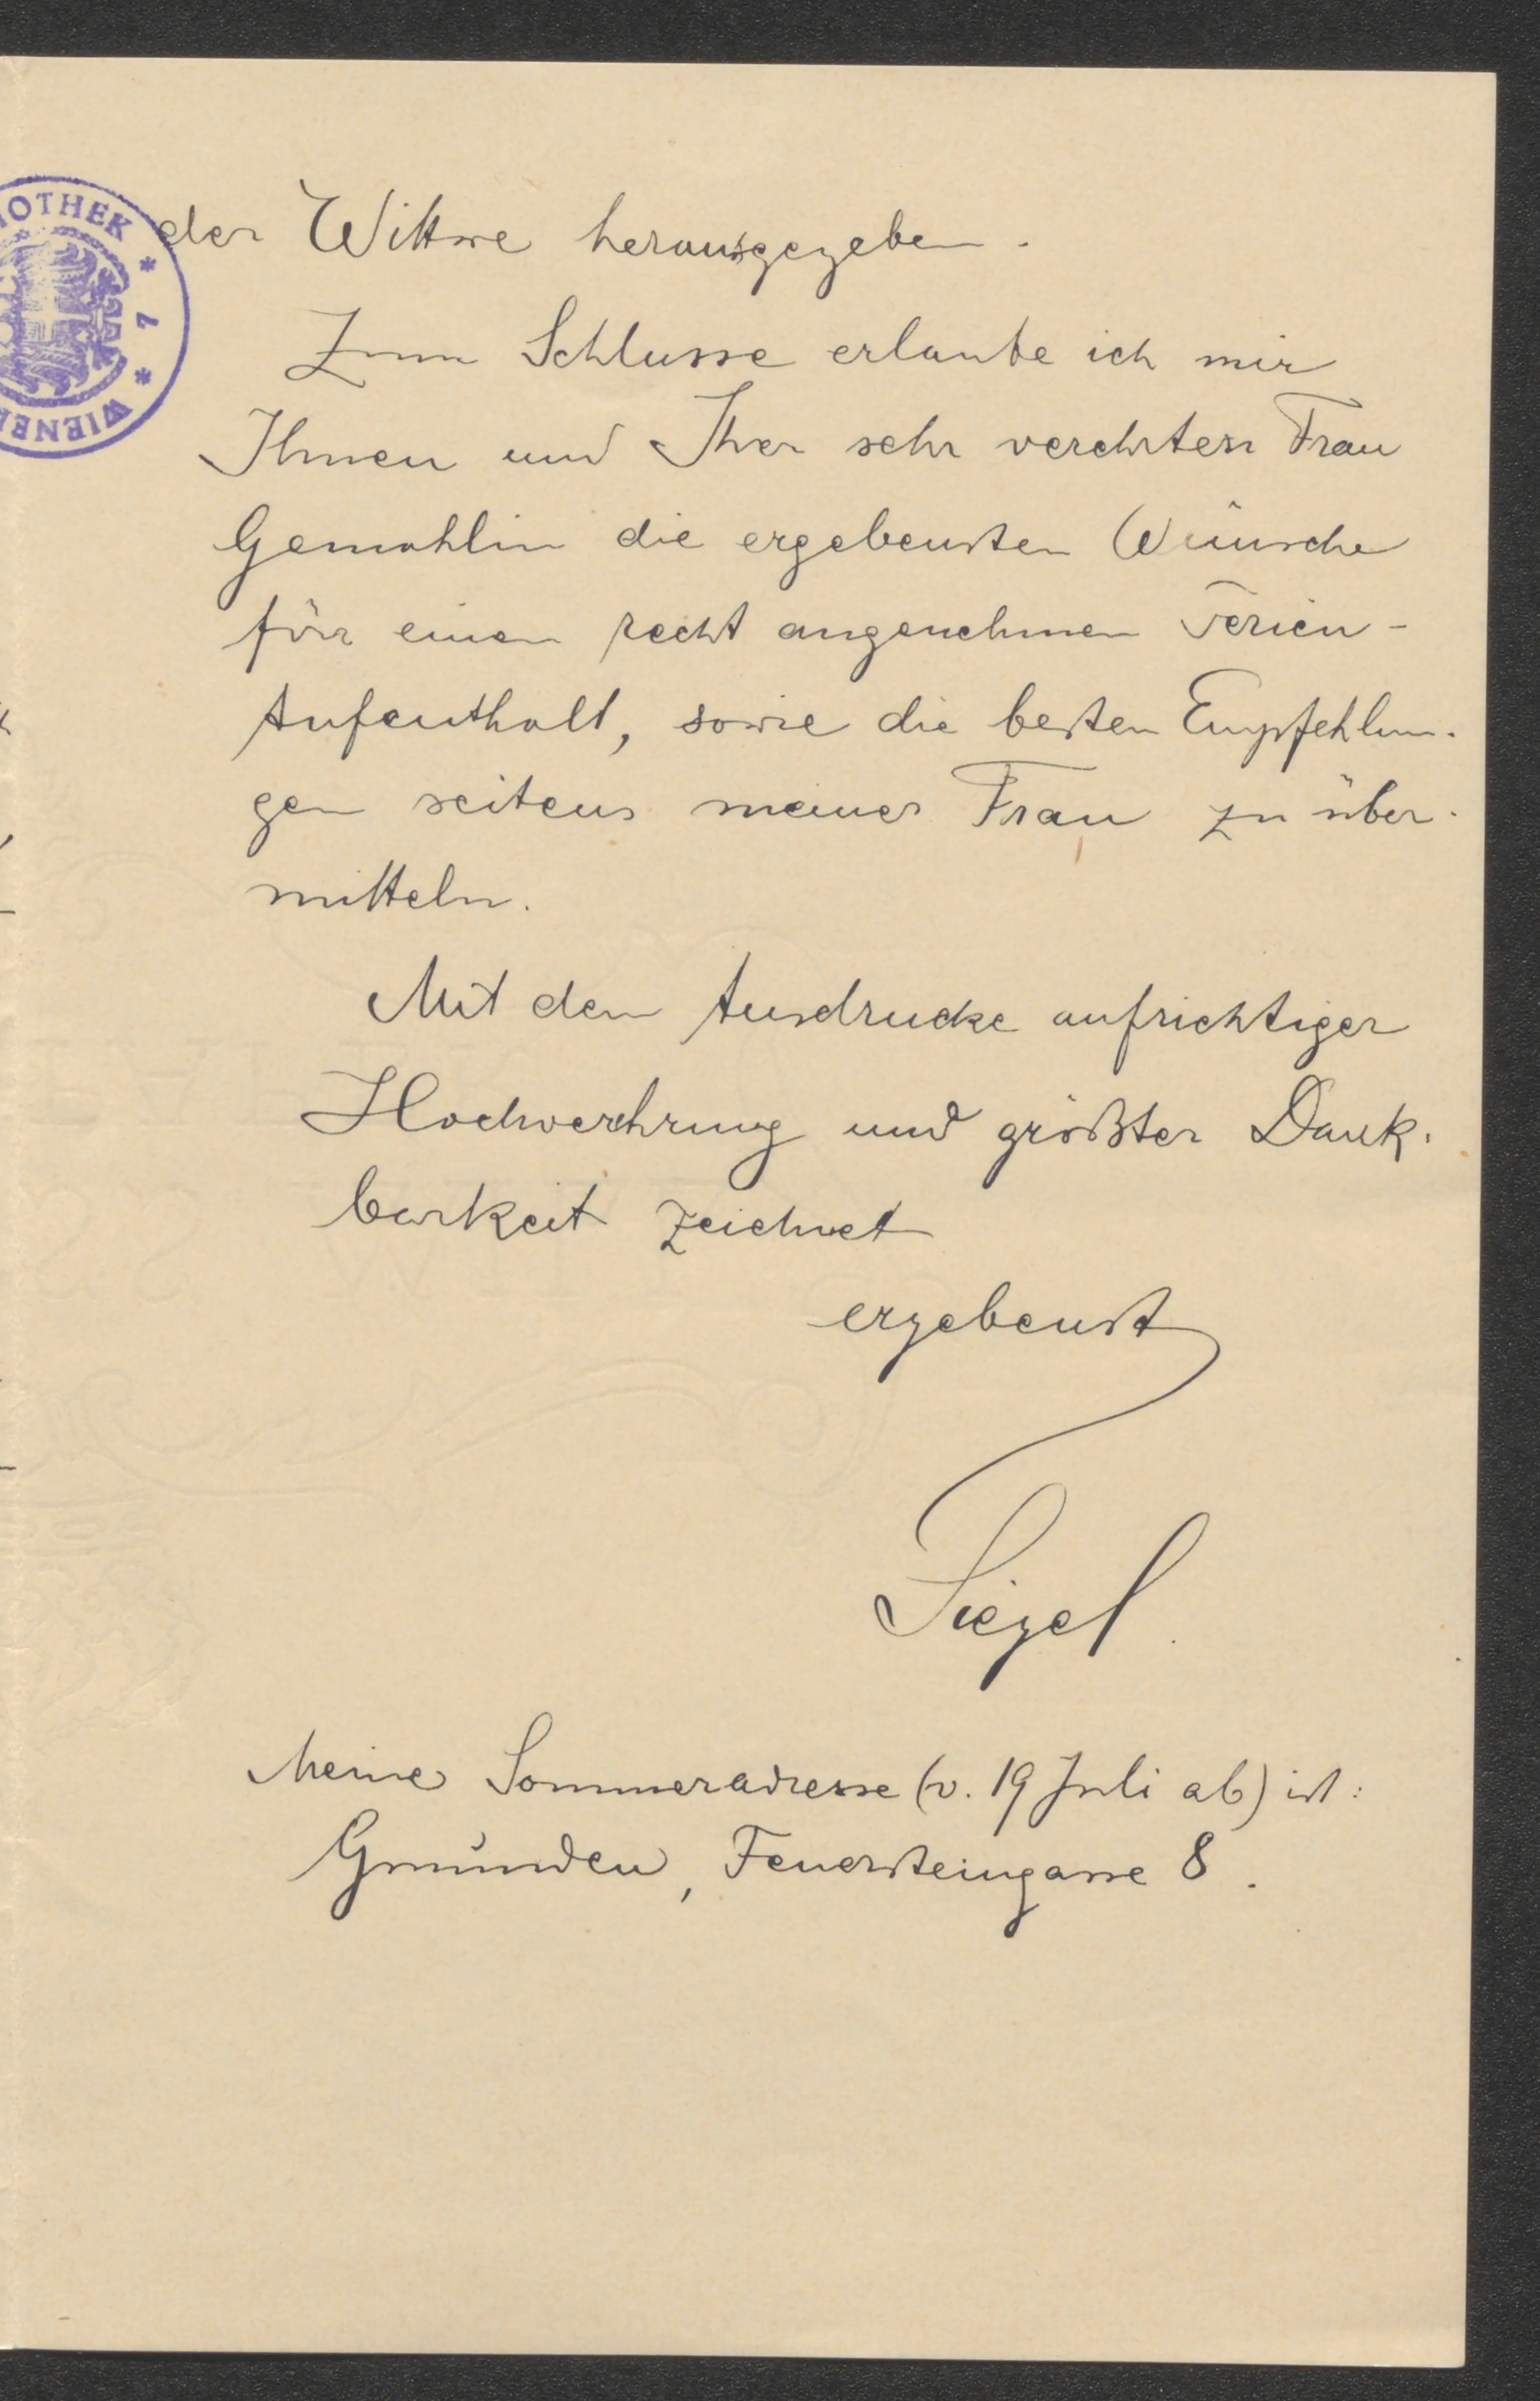 OTHEK * 7 * WIENER
der Wittwe herausgegeben.
Zum Schlusse erlaube ich mir
Ihnen und Ihrer sehr verehrten Frau
Gemahlin die ergebensten Wünsche
für einen recht angenehmen Ferien-
Aufenthalt, sowie die besten Empfehlun-
gen seitens meiner Frau zu über-
mitteln.
Mit dem Ausdrucke aufrichtiger
Hochverehrung und größter Dank-
barkeit zeichnet
ergebenst
Siegel.
Meine Sommeradresse (v. 19 Juli ab) ist:
Gmünden, Feuersteingasse 8.